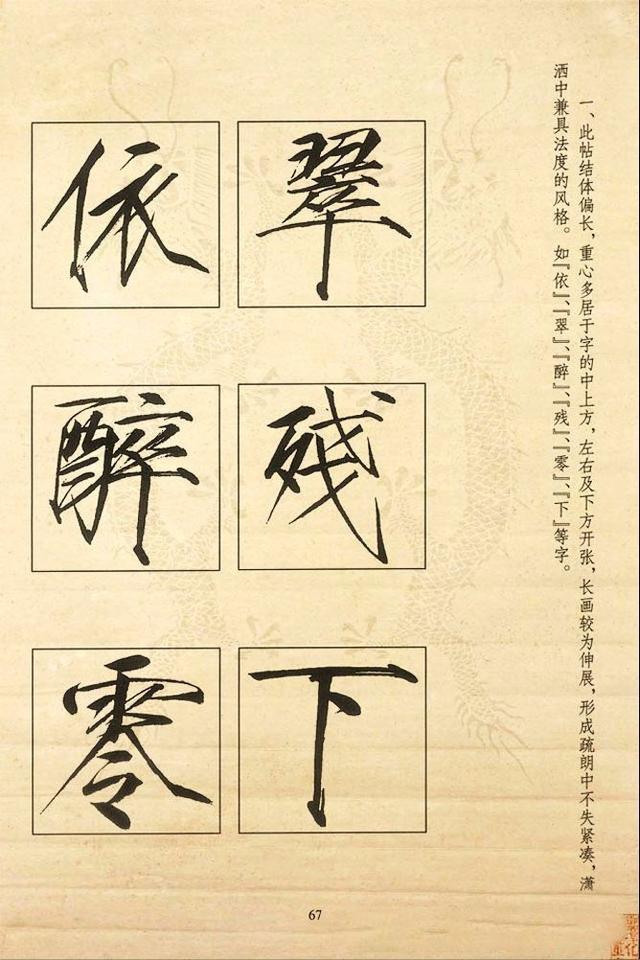 一、此帖结体偏长，重心多居于字的中上方，左右及下方开张，长画较为伸展，形成疏朗中不失紧凑，潇
洒中兼具法度的风格。如『依』、『翠』、『醉』、『残』、『零』、『下』等字。
翠
依
残
醉
下
零
67